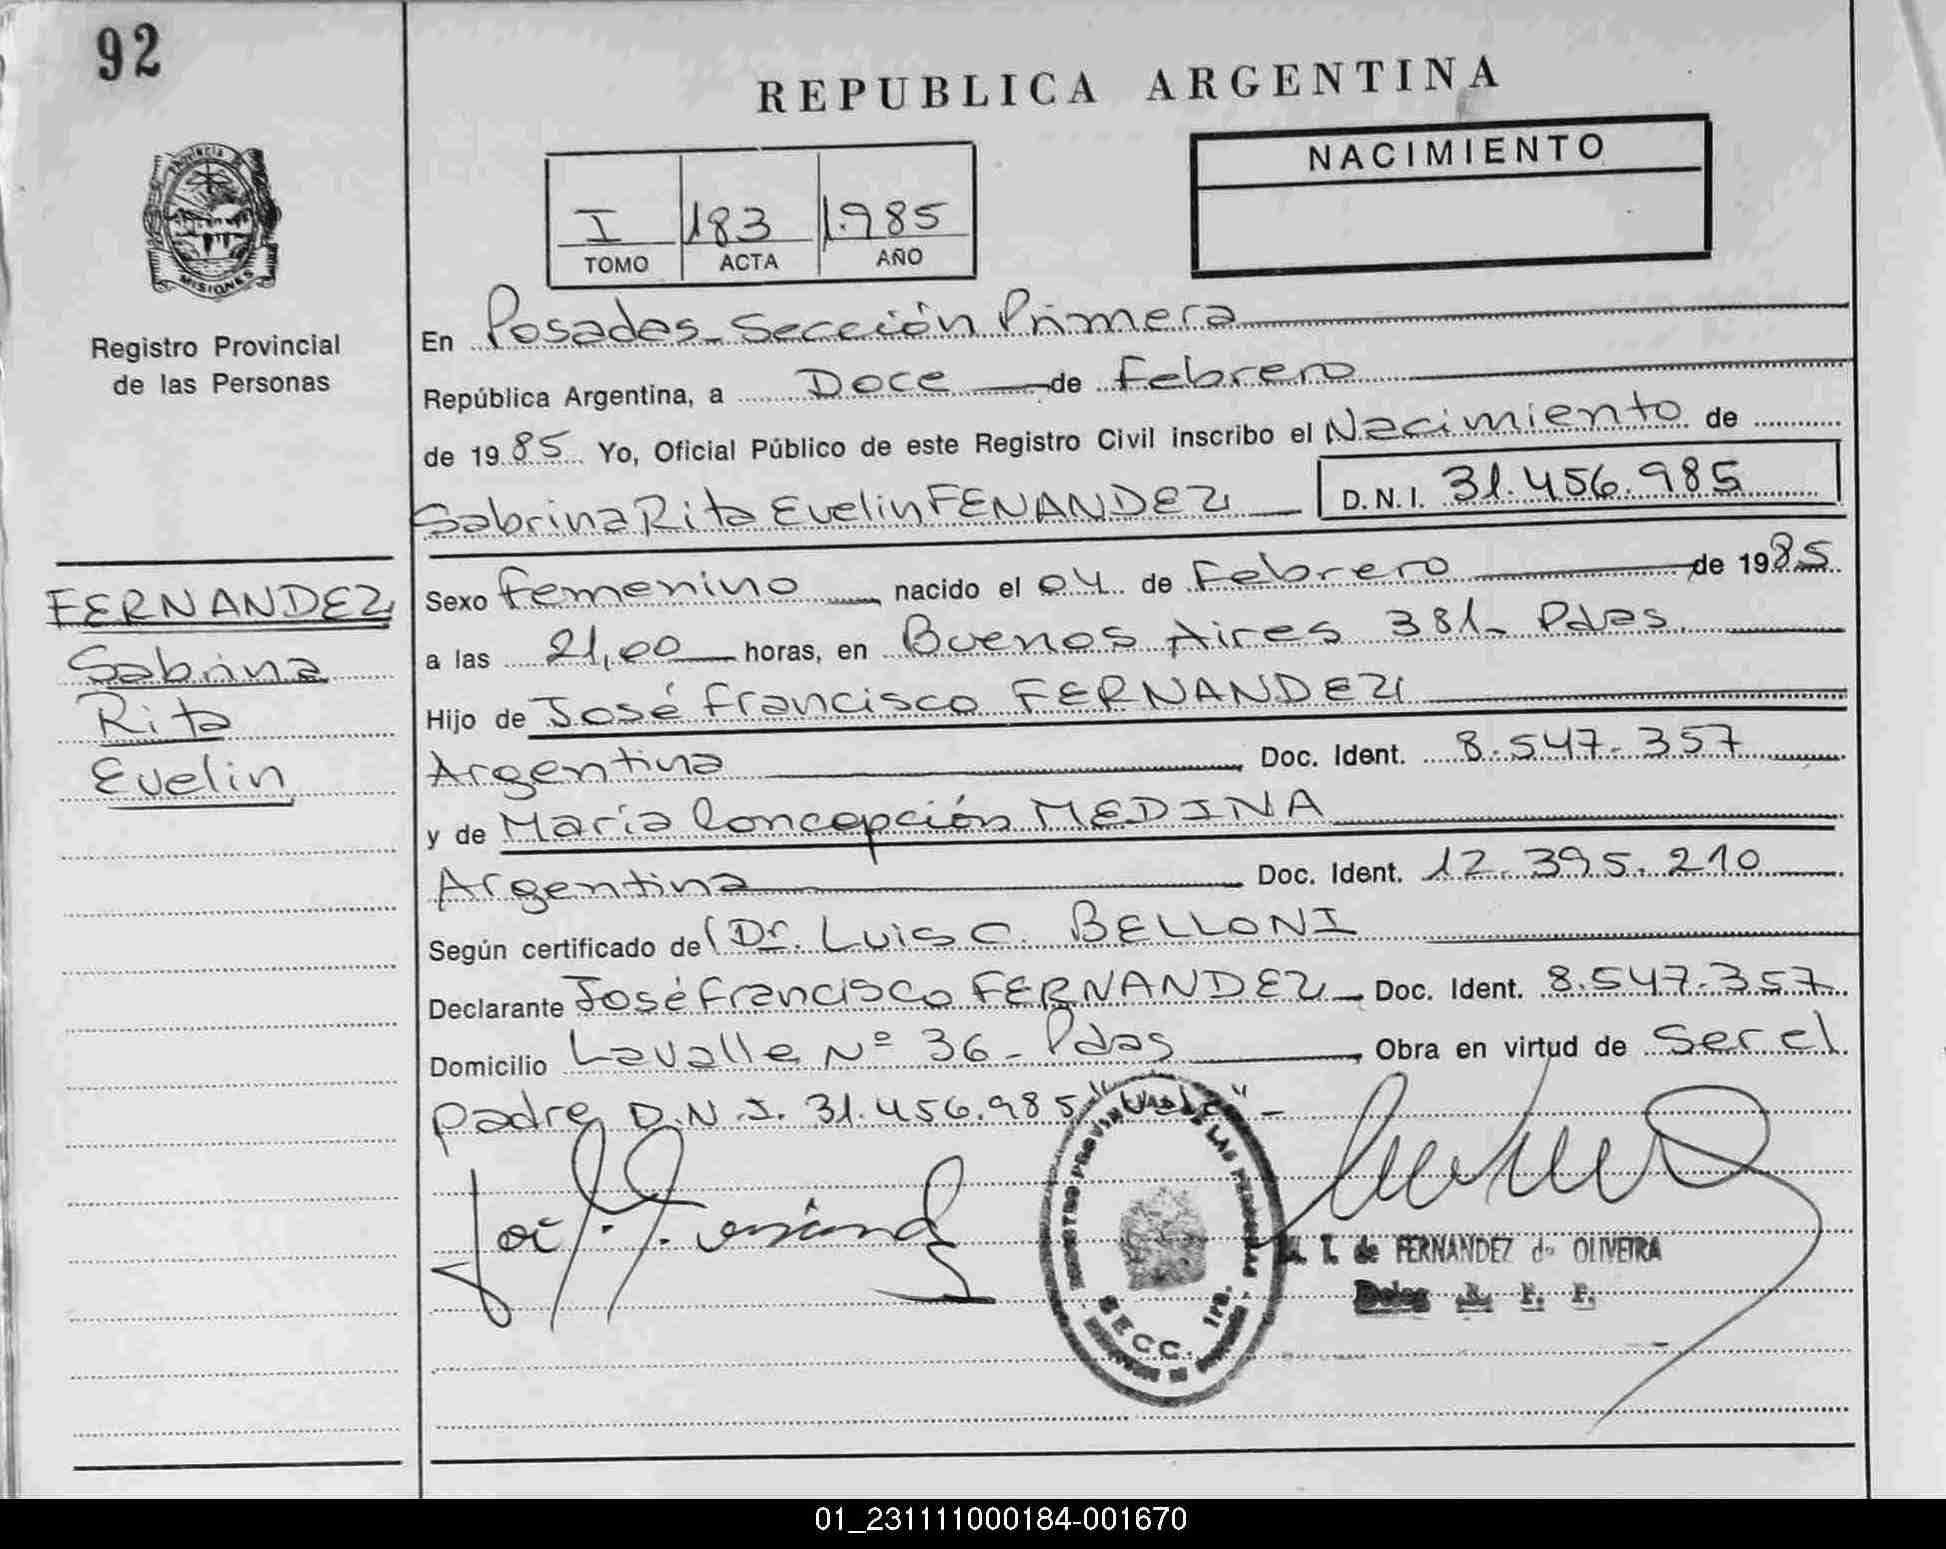 92
REPUBLICA ARGENTINA
Provincia
MISIONES
Registro Provincial
de las Personas
I 183 1.985
TOMO ACTA AÑO
NACIMIENTO
En Posadas - Sección Primera
República Argentina, a Doce de Febrero
de 1985 Yo, Oficial Público de este Registro Civil inscribo el Nacimiento de
Sabrina Rita Evelin FENANDEZ D.N.I. 31.456.985
FERNANDEZ
Sabrina
Rita
Evelin
Sexo femenino nacido el 04 de Febrero de 1985
a las 21,00 horas, en Buenos Aires 381- Pdas.
Hijo de José Francisco FERNANDEZ
Argentina Doc. Ident. 8.547.357
y de María Concepción MEDINA
Argentina Doc. Ident. 12.395.210
Según certificado de Dr. Luis C. BELLONI
Declarante José Francisco FERNANDEZ - Doc. Ident. 8.547.357
Domicilio Lavalle Nº 36 - Pdas Obra en virtud de ser el
padre D.N.I. 31.456.985 "Vale" -
SECC. 1ra.
T. de FERNANDEZ de OLIVEIRA
01_231111000184-001670